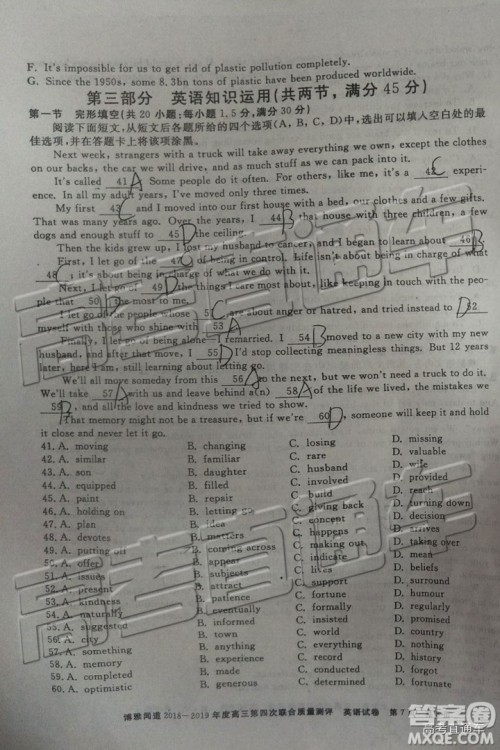 F. It's impossible for us to get rid of plastic pollution completely.
G. Since the 1950s, some 8.3bn tons of plastic have been produced worldwide.
第三部分 英语知识运用(共两节,满分45分)
第一节 完形填空(共20小题;每小题1.5分,满分30分)
阅读下面短文,从短文后各题所给的四个选项(A、B、C、D)中,选出可以填入空白处的最
佳选项,并在答题卡上将该项涂黑。
Next week, strangers with a truck will take away everything we own, except the clothes
on our backs, the car we will drive, and as much stuff as we can pack into it.
It's called 41 A Some people do it often. For others, like me, it's a 42 C experi-
ence. In all my adult years, I've moved only three times.
My first 43 and I moved into our first house with a bed, our clothes and a few gifts.
That was many years ago. Over the years, I 44 B that house with three children, a few
dogs and enough stuff to 45 the ceiling.
Then the kids grew up, I lost my husband to cancer, and I began to learn about 46 B
First, I let go of the 47 of being in control. Life isn't about being in charge.
48 C it's about being in charge of what we do with it.
Next, I let go of 49 the things I care most about, like children and
pets that 50 the most to me.
I let go of the people whose 51 care about anger or hatred, and tried instead to D 52
myself with those who shine with 53 A
Finally, I let go of being alone—I remarried. I 54 B to a new city with my new
husband, and after that move, I 55 D I'd stop collecting meaningless things. But 12 years
later, here I am, still learning about letting go.
We'll all move someday from this 56 A to the next, but we won't need a truck to do it.
We'll take 57 A with us and leave behind a(n) 58 A of the life we lived, the mistakes we
59 B, and all the love and kindness we tried to show.
That memory might not be a treasure, but if we're 60 D, someone will keep it and hold
it close and never let it go.
41. A. moving B. changing C. losing D. missing
42. A. similar B. familiar C. rare D. valuable
43. A. son B. daughter C. husband D. wife
44. A. equipped B. filled C. involved D. provided
45. A. paint B. repair C. build D. reach
46. A. holding on B. letting go C. giving back D. turning down
47. A. plan B. idea C. concept D. decision
48. A. devotes B. matters C. happens D. arrives
49. A. putting off B. coming across C. making out D. taking over
50. A. offer B. appear C. indicate D. mean
51. A. issues B. subjects C. questions D. beliefs
52. A. present B. attract C. support D. surround
53. A. kindness B. patience C. fortune D. humour
54. A. naturally B. eventually C. formally D. regularly
55. A. suggested B. informed C. insisted D. promised
56. A. city B. town C. world D.
57. A. something B. anything C. everything D. nothing
58. A. memory B. experience C. record D.
59. A. completed B. made C. found D.
60. A. optimistic B. generous C. D.
博雅闻道2018—2019年度高三第四次联合质量测评 英语试卷 第7
高考直通车
答案圈
MXEQE.COM